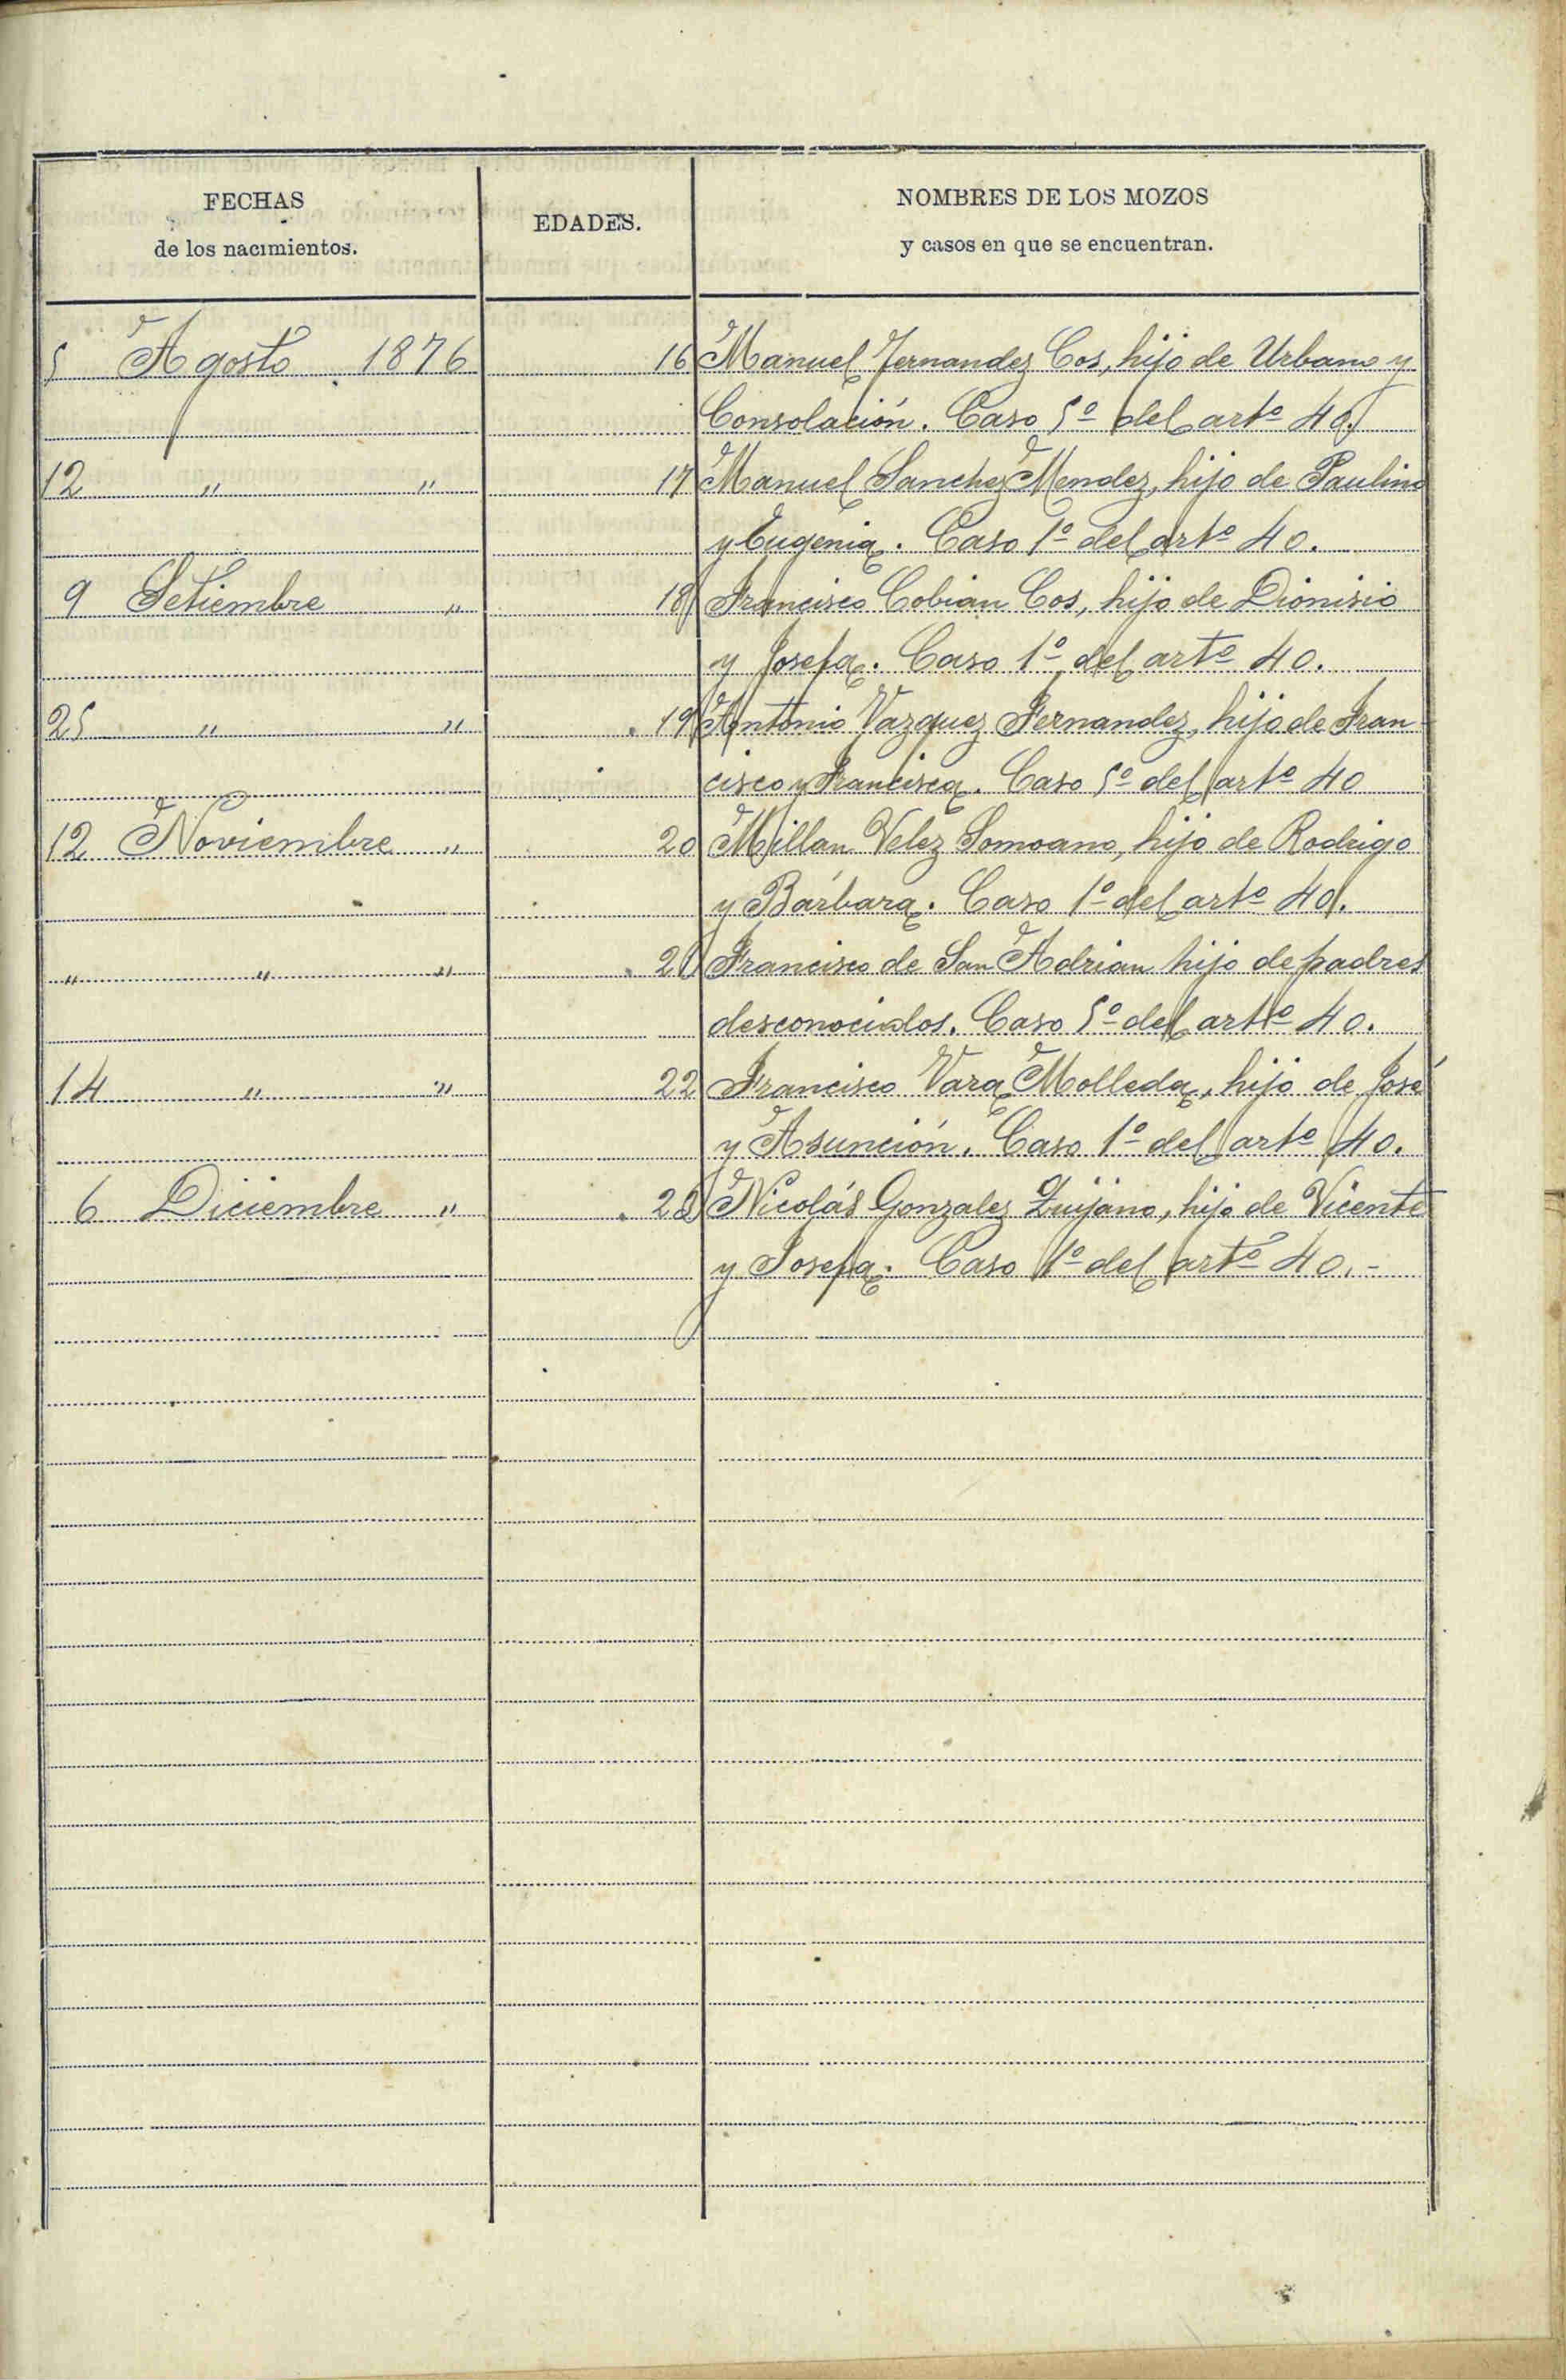 FECHAS EDADES. NOMBRES DE LOS MOZOS
de los nacimientos. y casos en que se encuentran.
5 Agosto 1876 16 Manuel Fernandez Cos, hijo de Urbano y
Consolación. Caso 5º del artº 40.
12 " " 17 Manuel Sanchez Mendez, hijo de Paulino
y Eugenia. Caso 1º del artº 40.
9 Setiembre " 18 Francisco Cobian Cos, hijo de Dionisio
y Josefa. Caso 1º del artº 40.
25 " " 19 Antonio Vazquez Fernandez, hijo de Fran-
cisco y Francisca. Caso 5º del artº 40
12 Noviembre " 20 Millan Velez Somoano, hijo de Rodrigo
y Bárbara. Caso 1º del artº 40.
" " " 21 Francisco de San Adrian hijo de padres
desconocidos. Caso 5º del artº 40.
14 " " 22 Francisco Vara Molleda, hijo de José
y Asunción. Caso 1º del artº 40.
6 Diciembre " 23 Nicolás Gonzalez Quijano, hijo de Vicente
y Josefa. Caso 1º del artº 40.-